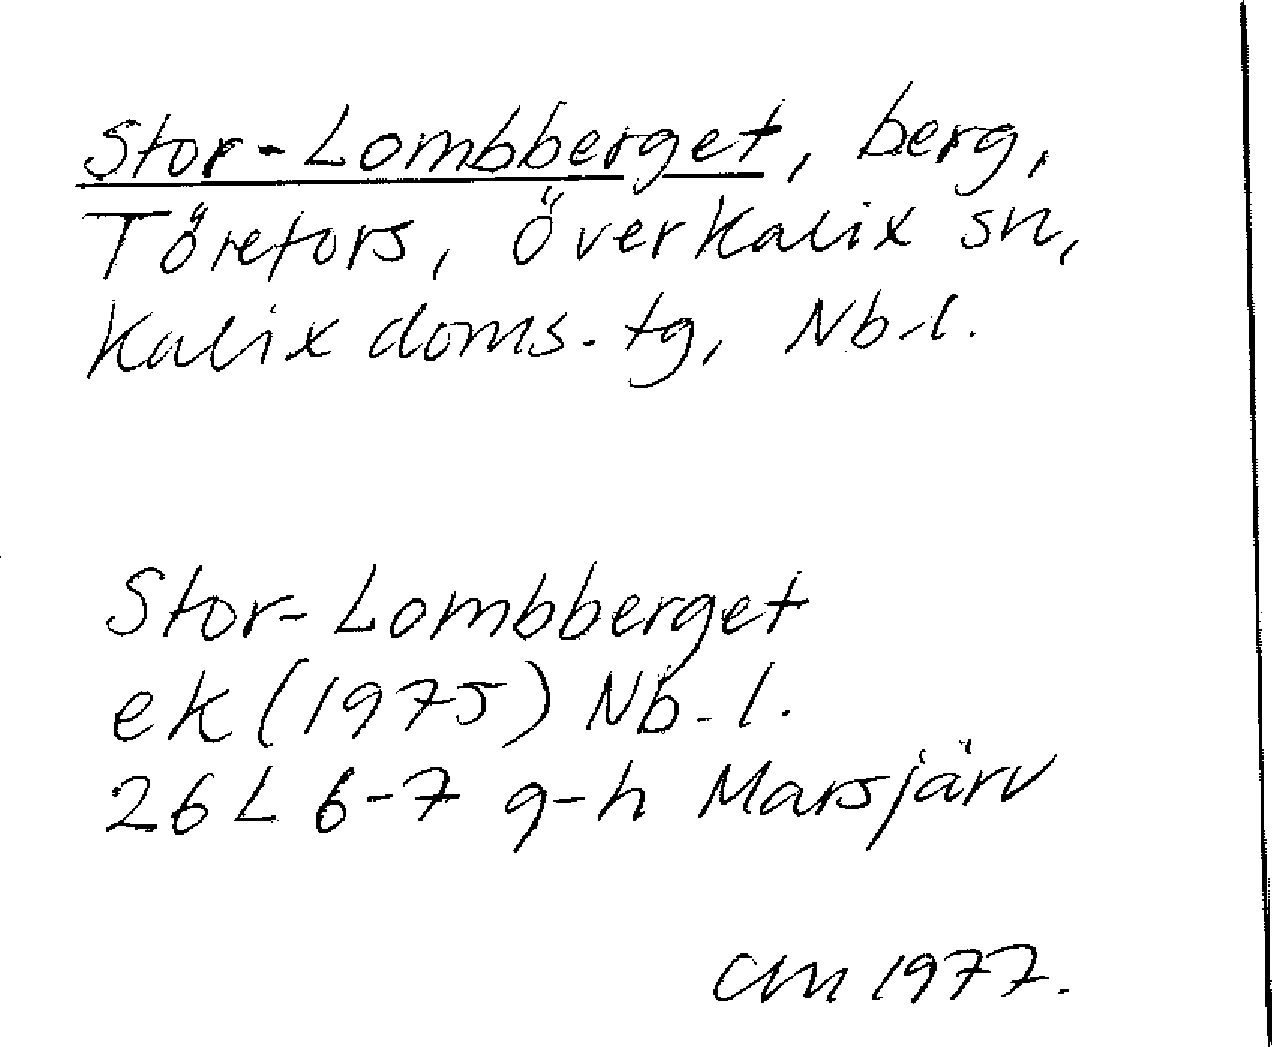 Stor-Lombberget, berg,
Törefors, Överkalix sn,
Kalix doms.tg, Nb-l.
Stor-Lombberget
ek (1975) Nb-l.
26L 6-7 g-h Marsjärv
CM 1977.